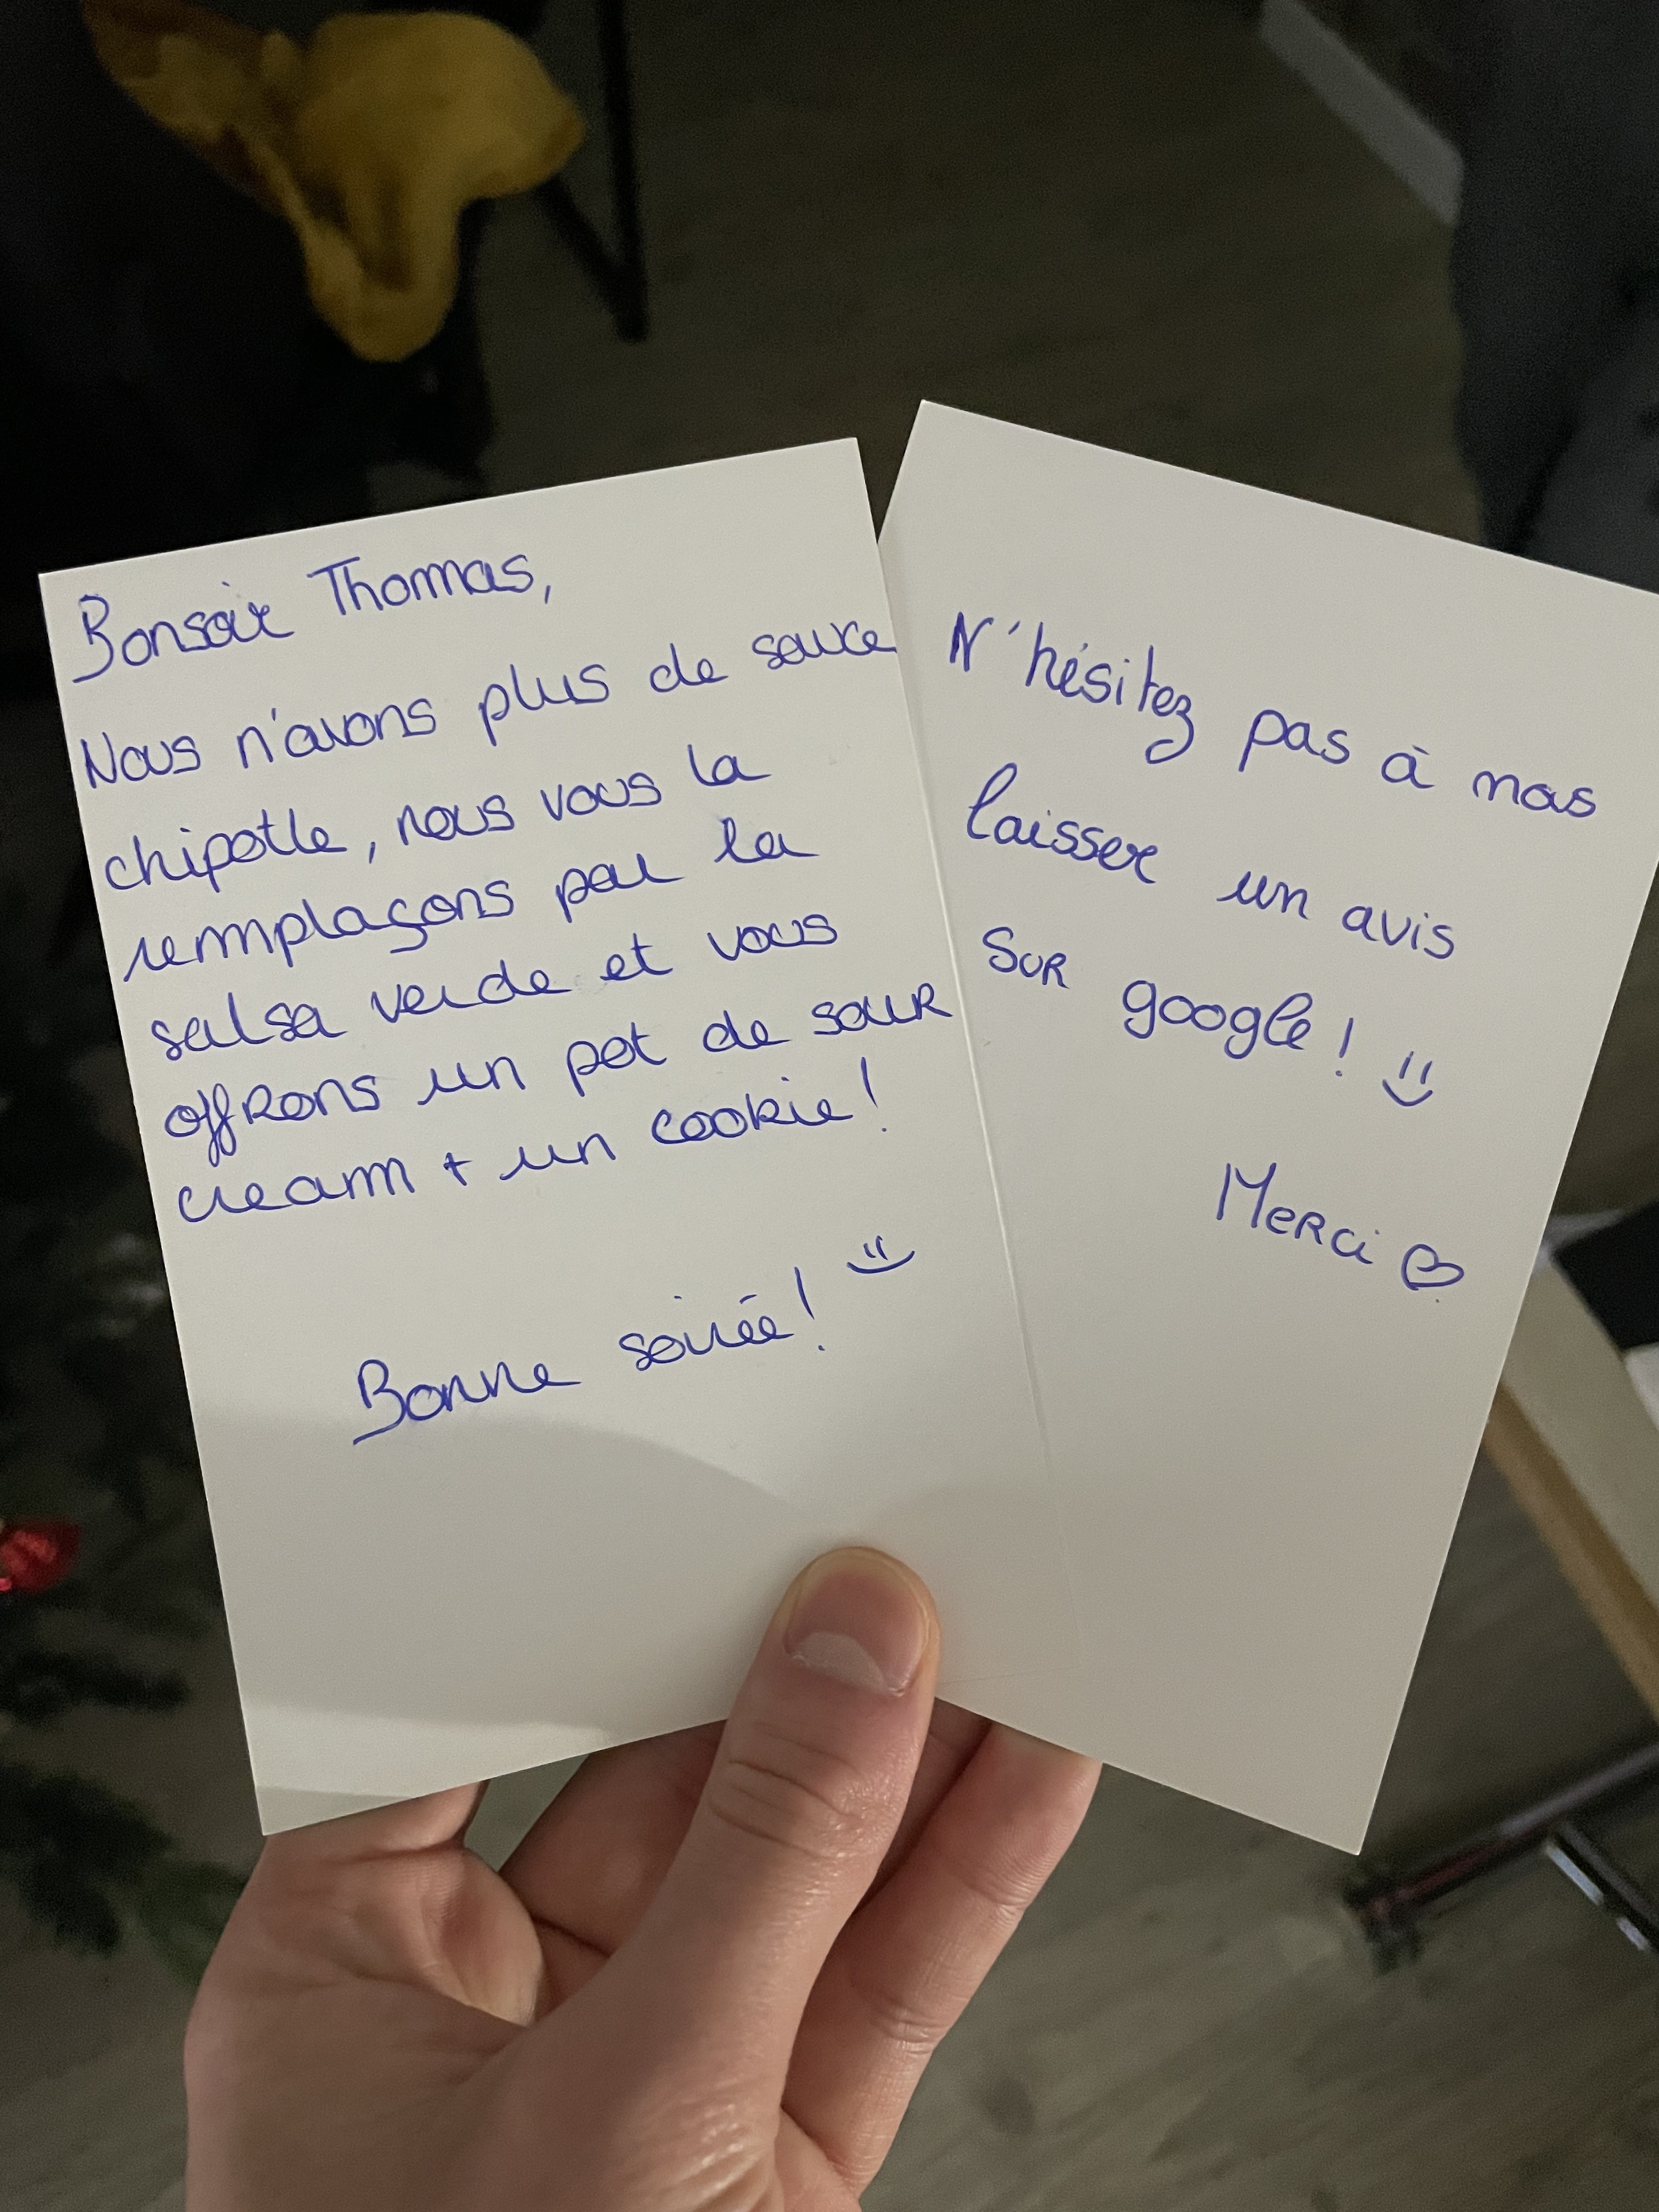 Bonsoir Thomas,
Nous n'avons plus de sauce
chipotle, nous vous la
remplaçons par la
salsa verde et vous
offrons un pot de sour
cream + un cookie!
Bonne soirée!
N'hésitez pas à nous
laisser un avis
sur google!
Merci